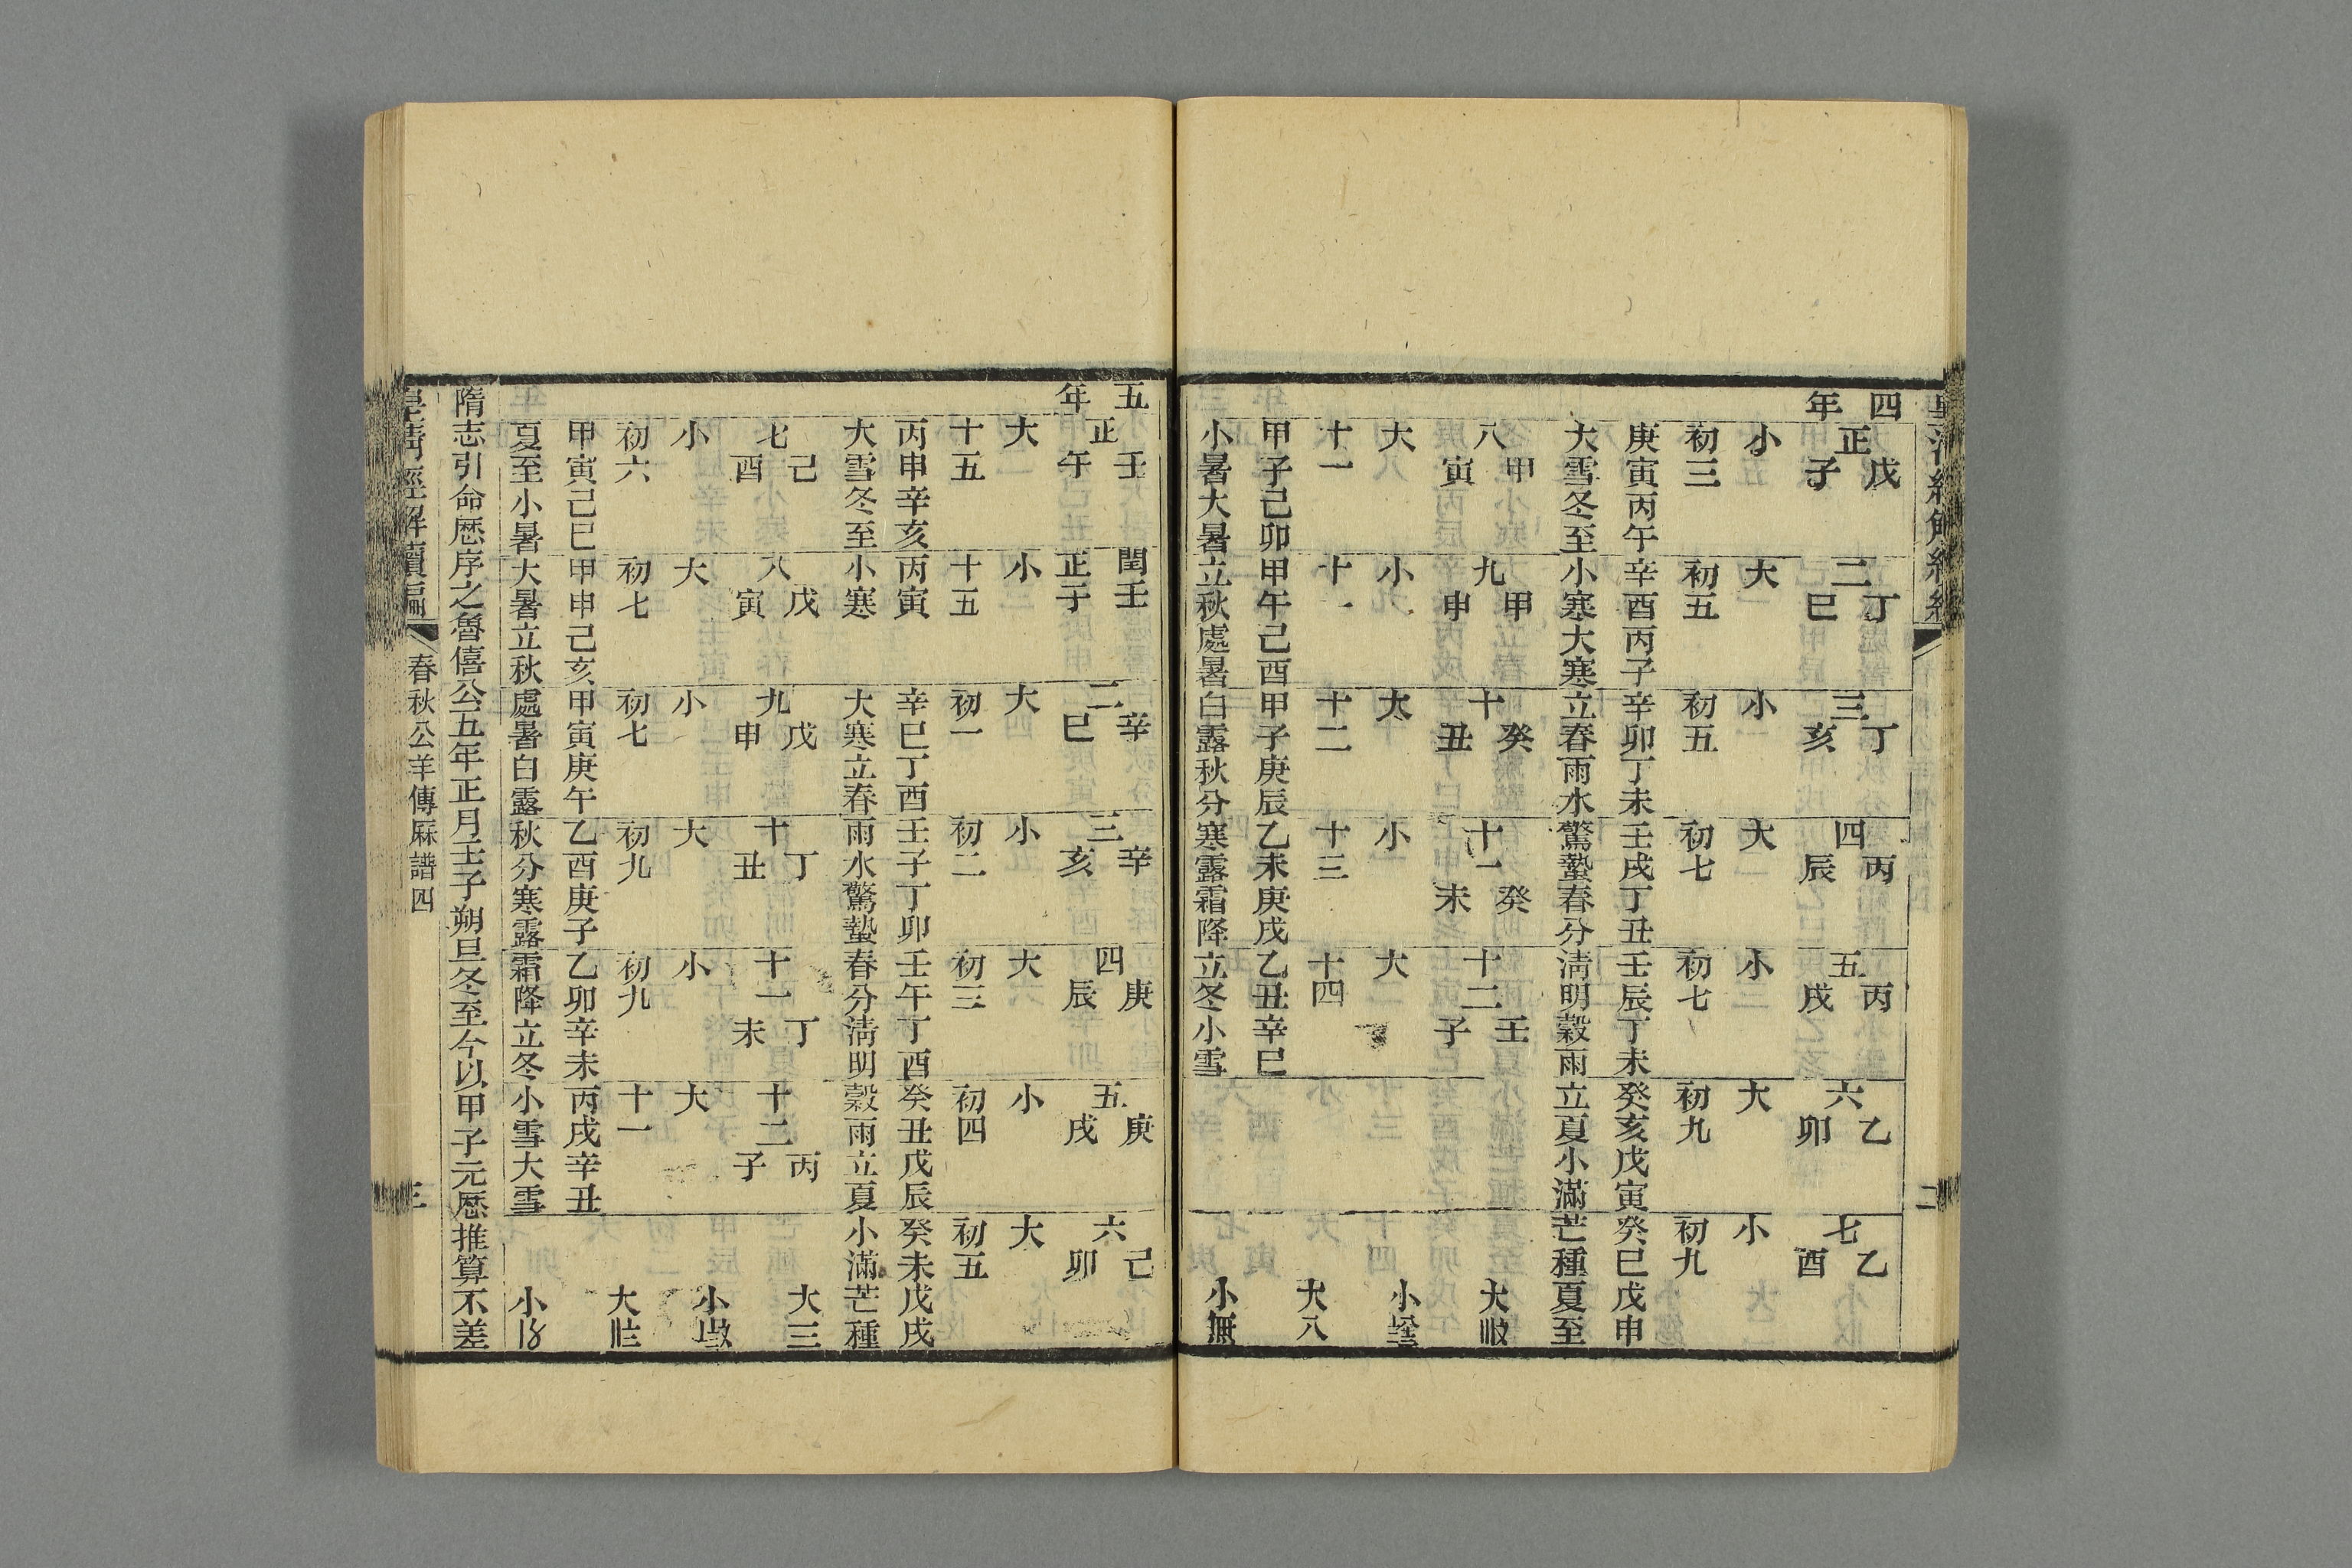 四年
正戊子 二丁巳 三丁亥 四丙辰 五丙戌 六乙卯 七乙酉
小 大 小 大 小 大 小
初三 初五 初五 初七 初七 初九 初九
庚寅丙午辛酉丙子辛卯丁未壬戌丁丑壬辰丁未癸亥戊寅癸巳戊申
大雪冬至小寒大寒立春雨水驚蟄春分清明穀雨立夏小滿芒種夏至
八甲寅 九甲申 十癸丑 十一癸未 十二壬子 大
大 小 大 小 大 小
十一 十一 十二 十三 十四 大八
甲子己卯甲午己酉甲子庚辰乙未庚戌乙丑辛巳
小暑大暑立秋處暑白露秋分寒露霜降立冬小雪 小無
五年
正壬午 閏正壬子 二辛巳 三辛亥 四庚辰 五庚戌 六己卯
大 小 大 小 大 小 大
十五 十五 初一 初二 初三 初四 初五
丙申辛亥丙寅辛巳丁酉壬子丁卯壬午丁酉癸丑戊辰癸未戊戌
大雪冬至小寒大寒立春雨水驚蟄春分清明穀雨立夏小滿芒種
七己酉 八戊寅 九戊申 十丁丑 十一丁未 十二丙子 大三
小 大 小 大 小 大 小
初六 初七 初七 初九 初九 十一 大
甲寅己巳甲申己亥甲寅庚午乙酉庚子乙卯辛未丙戌辛丑
夏至小暑大暑立秋處暑白露秋分寒露霜降立冬小雪大雪 小
隋志引命厯序之魯僖公五年正月壬子朔旦冬至今以甲子元厯推算不差
皇清經解續編 春秋公羊傳厤譜四 三